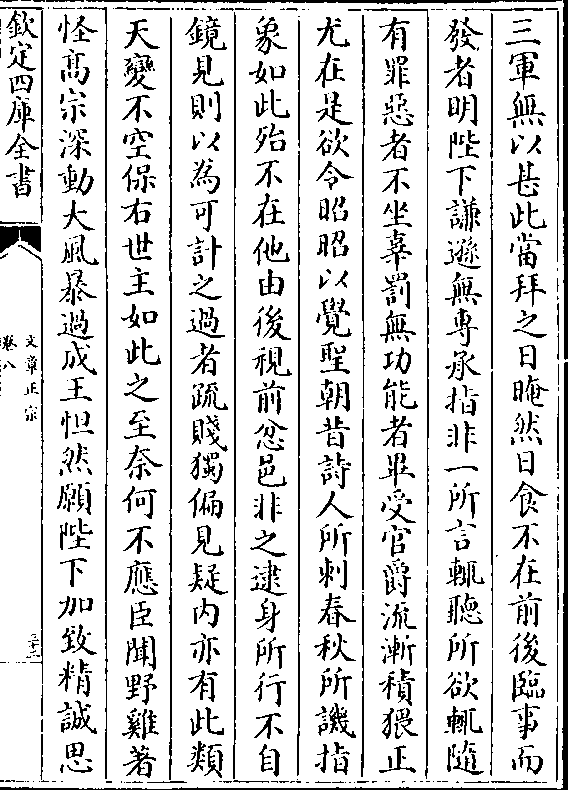 三軍無以甚此當拜之日晻然日食不在前後臨事而
發者明陛下謙遜無專承指非一所言輒聽所欲輒隨
有罪惡者不坐辜罰無功能者畢受官爵流漸積猥正
尤在是欲令昭昭以覺聖朝昔詩人所刺春秋所譏指
象如此殆不在他由後視前忿邑非之逮身所行不自
鏡見則以為可計之過者疏賤獨偏見疑内亦有此類
天變不空保右世主如此之至奈何不應臣聞野雞著
怪髙宗深動大風暴過成王怛然願陛下加致精誠思
欽定四庫全書
文章正宗
卷八
三十二